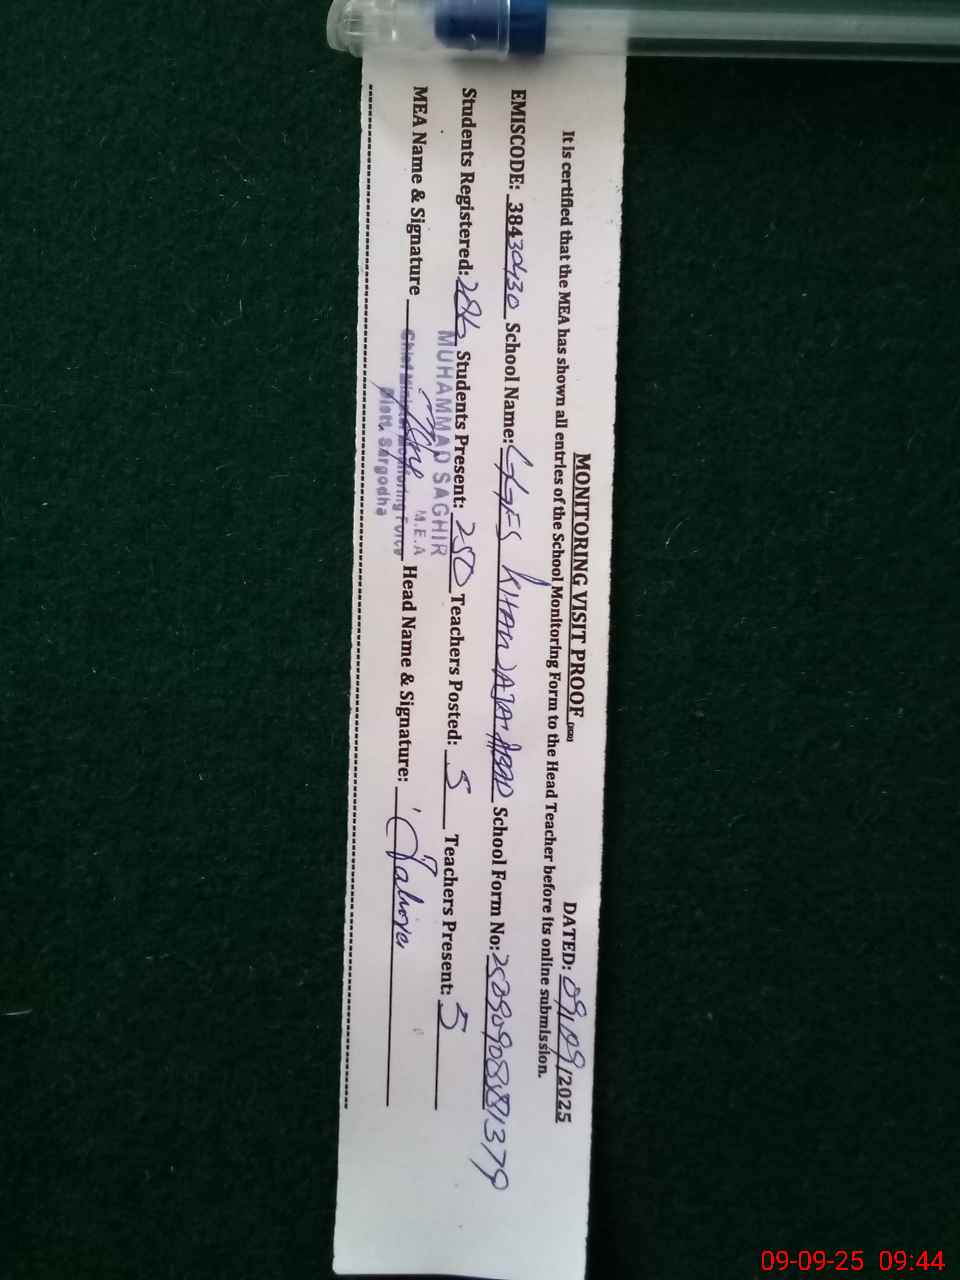 MONITORING VISIT PROOF
DATED: 09/09/2025
It is certified that the MEA has shown all entries of the School Monitoring Form to the Head Teacher before its online submission.
EMISCODE: 38430430 School Name: GGES KHAN JAJA ABAD School Form No:
Students Registered: 286 Students Present: 250 Teachers Posted: 5 Teachers Present: 5
MUHAMMAD SAGHIR
M.E.A
MEA Name & Signature Head Name & Signature:
Chief Minister Monitoring Force
Distt. Sargodha
09-09-25 09:44